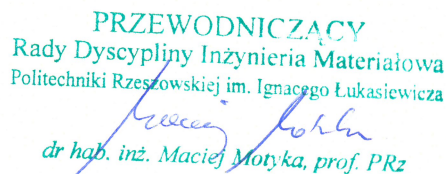 PRZEWODNICZĄCY
Rady Dyscypliny Inżynieria Materiałowa
Politechniki Rzeszowskiej im. Ignacego Łukasiewicza
dr hab. inż. Maciej Motyka, prof. PRz